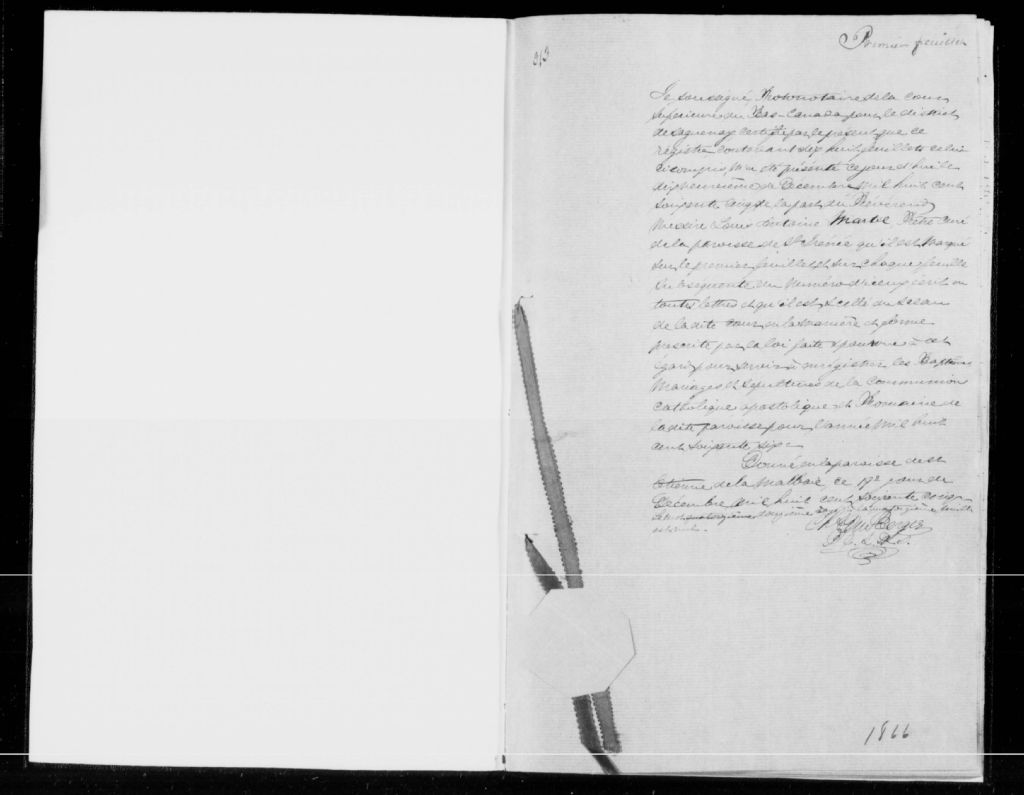 Premier feuillet
Je soussigné Protonotaire de la Cour
Supérieure du Bas-Canada pour le district
de Saguenay Certifie par le present que ce
registre contenant dix huit feuillets celui
ci compris, M'a été présenté ce jour d'hui le
dix neuvième de Décembre Mil huit cent
soixante cinq de la part du Révérend
Messire Louis Antoine Martel, Ptre Curé
de la paroisse de St Irénée qu'il est Marqué
sur le premier feuillet et sur chaque feuillet
subséquent du Numéro d'iceux écrit en
toutes lettres et qu'il est Scellé du Sceau
de la dite Cour en la manière et forme
prescrite par la loi faite & pourvue à cet
égard pour servir à enrégistrer les Baptêmes
Mariages et Sépultures de la Communion
Catholique apostolique et Romaine de
la dite paroisse pour l'année Mil huit
cent soixante six
Donné en la paroisse de St
Etienne de la Malbaie ce 19e jour de
Décembre Mil huit cent Soixante cinq
P. C. S. D. S.
1866